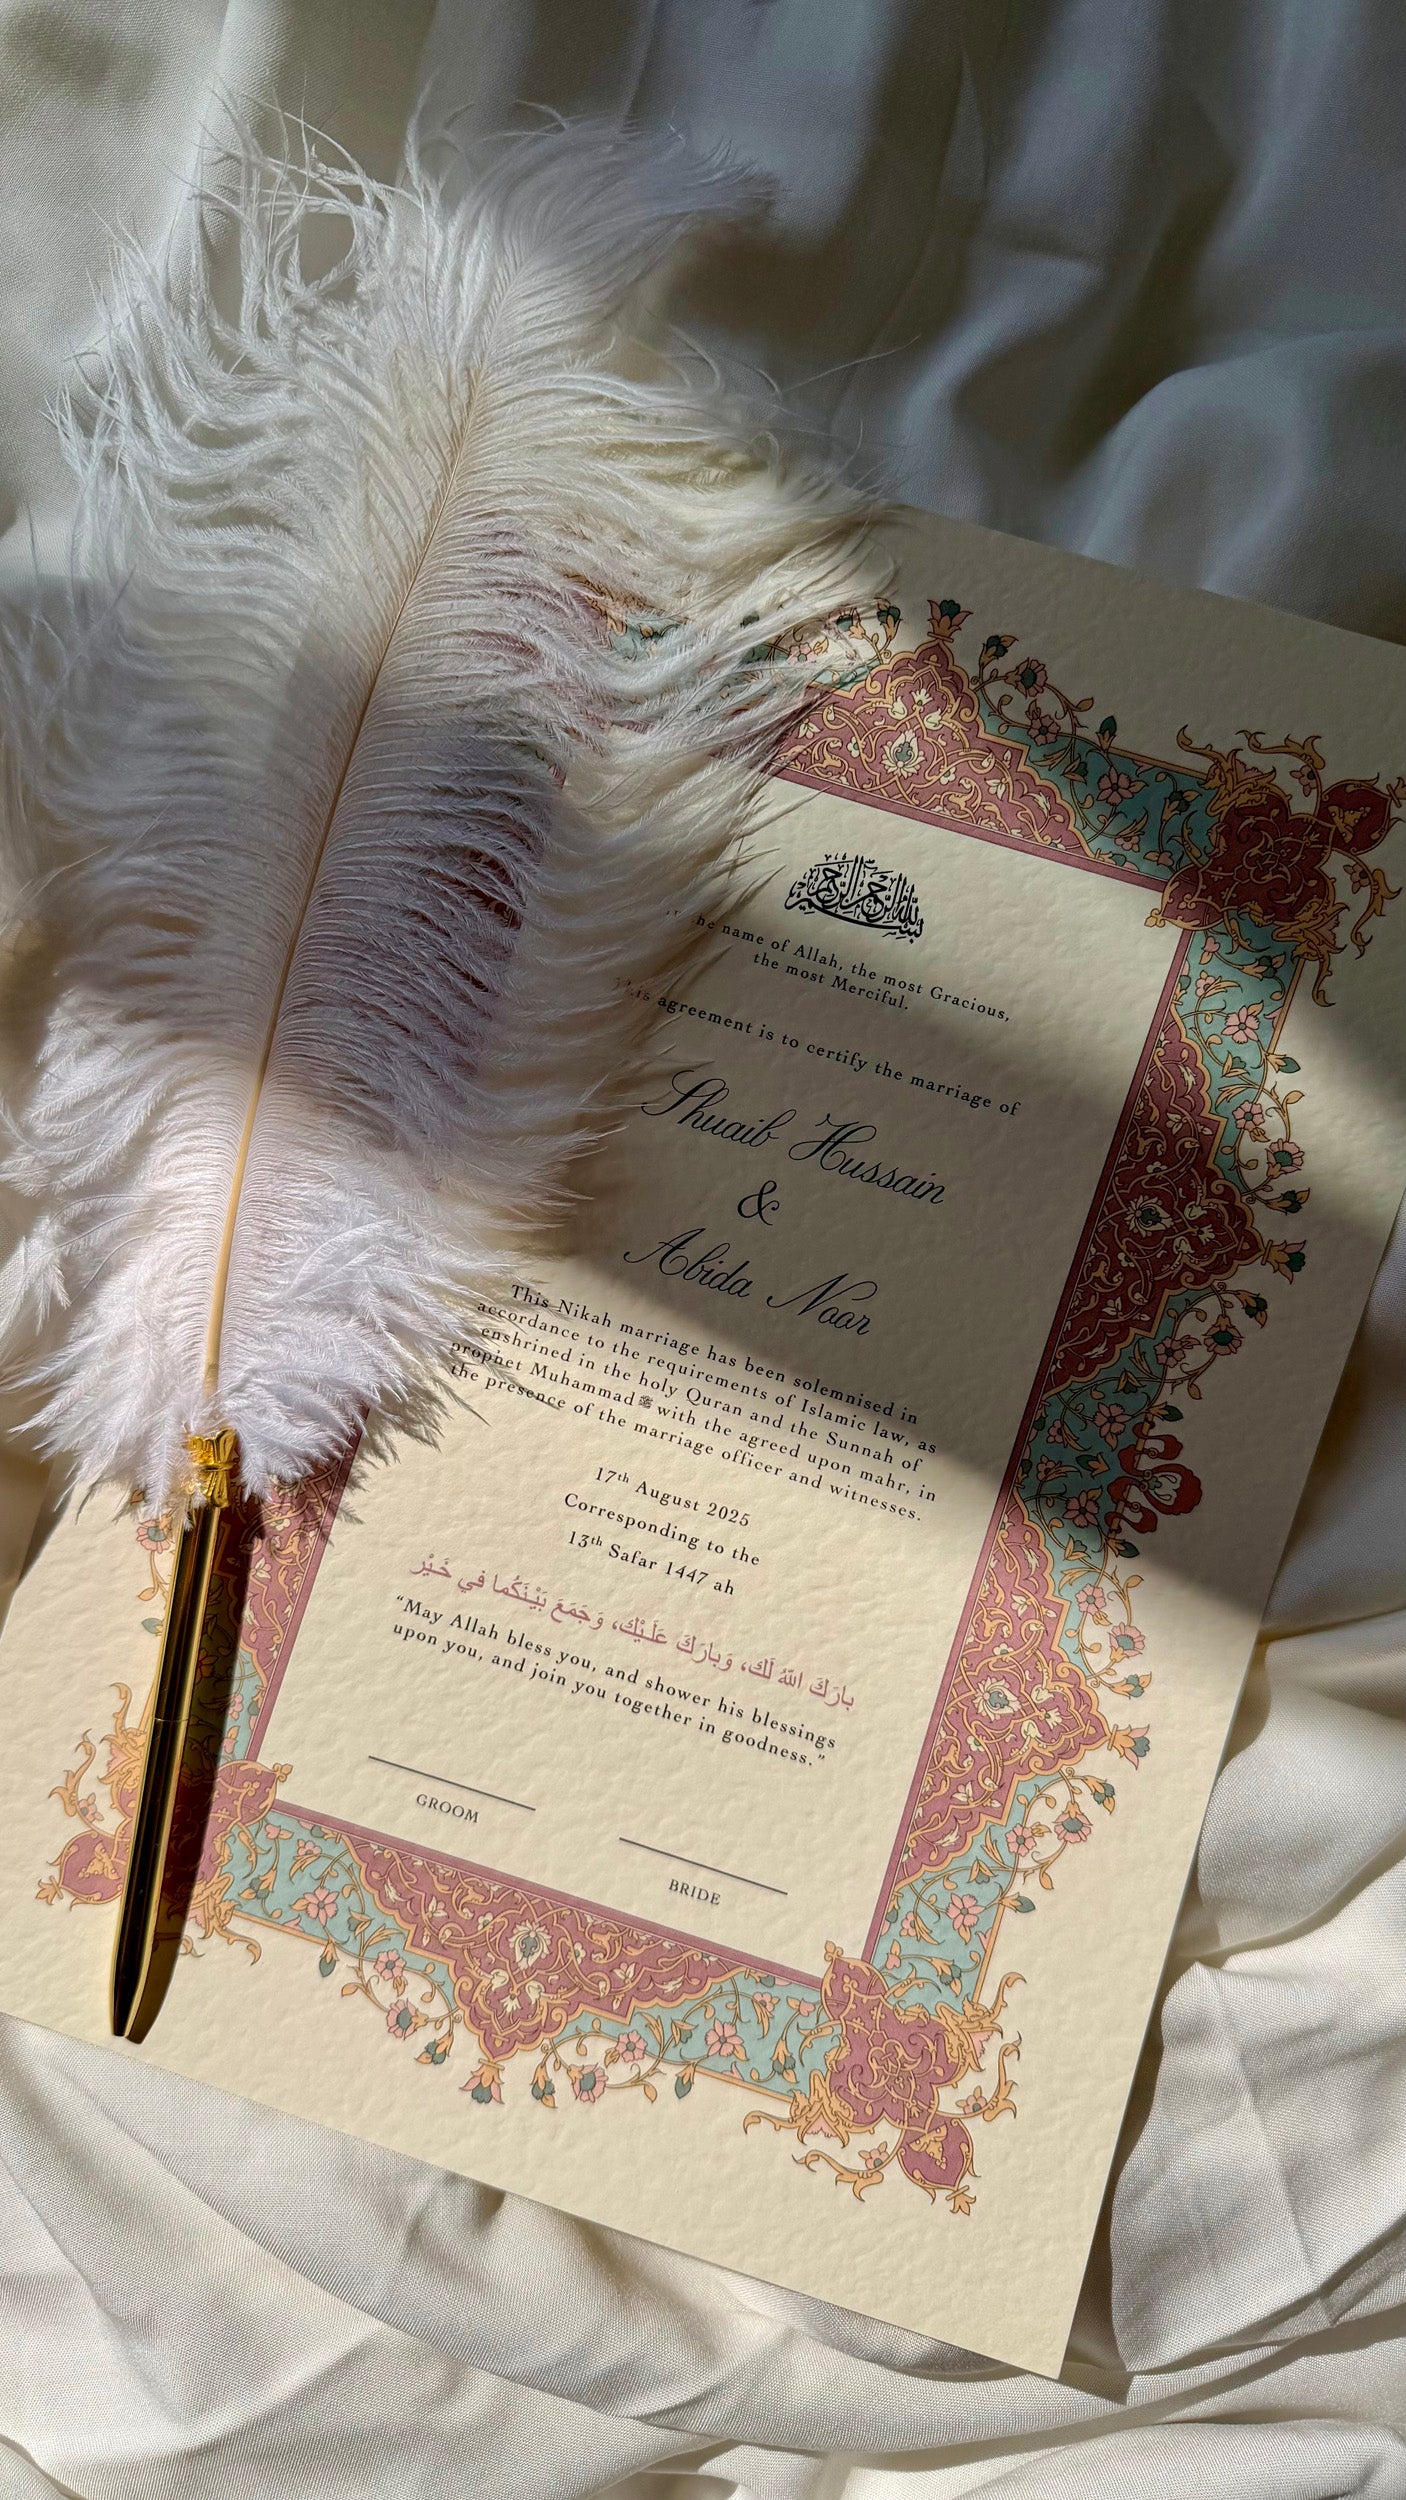 بسم الله الرحمن الرحيم
the name of Allah, the most Gracious,
the most Merciful.
This agreement is to certify the marriage of
Shuaib Hussain
&
Abida Noor
This Nikah marriage has been solemnised in
accordance to the requirements of Islamic law, as
enshrined in the holy Quran and the Sunnah of
prophet Muhammad ﷺ with the agreed upon mahr, in
the presence of the marriage officer and witnesses.
17th August 2025
Corresponding to the
13th Safar 1447 ah
بارَكَ اللهُ لَك، وَبارَكَ عَلَـيْك، وَجَمَعَ بَيْنَكُما في خَـيْر
“May Allah bless you, and shower his blessings
upon you, and join you together in goodness.”
GROOM
BRIDE